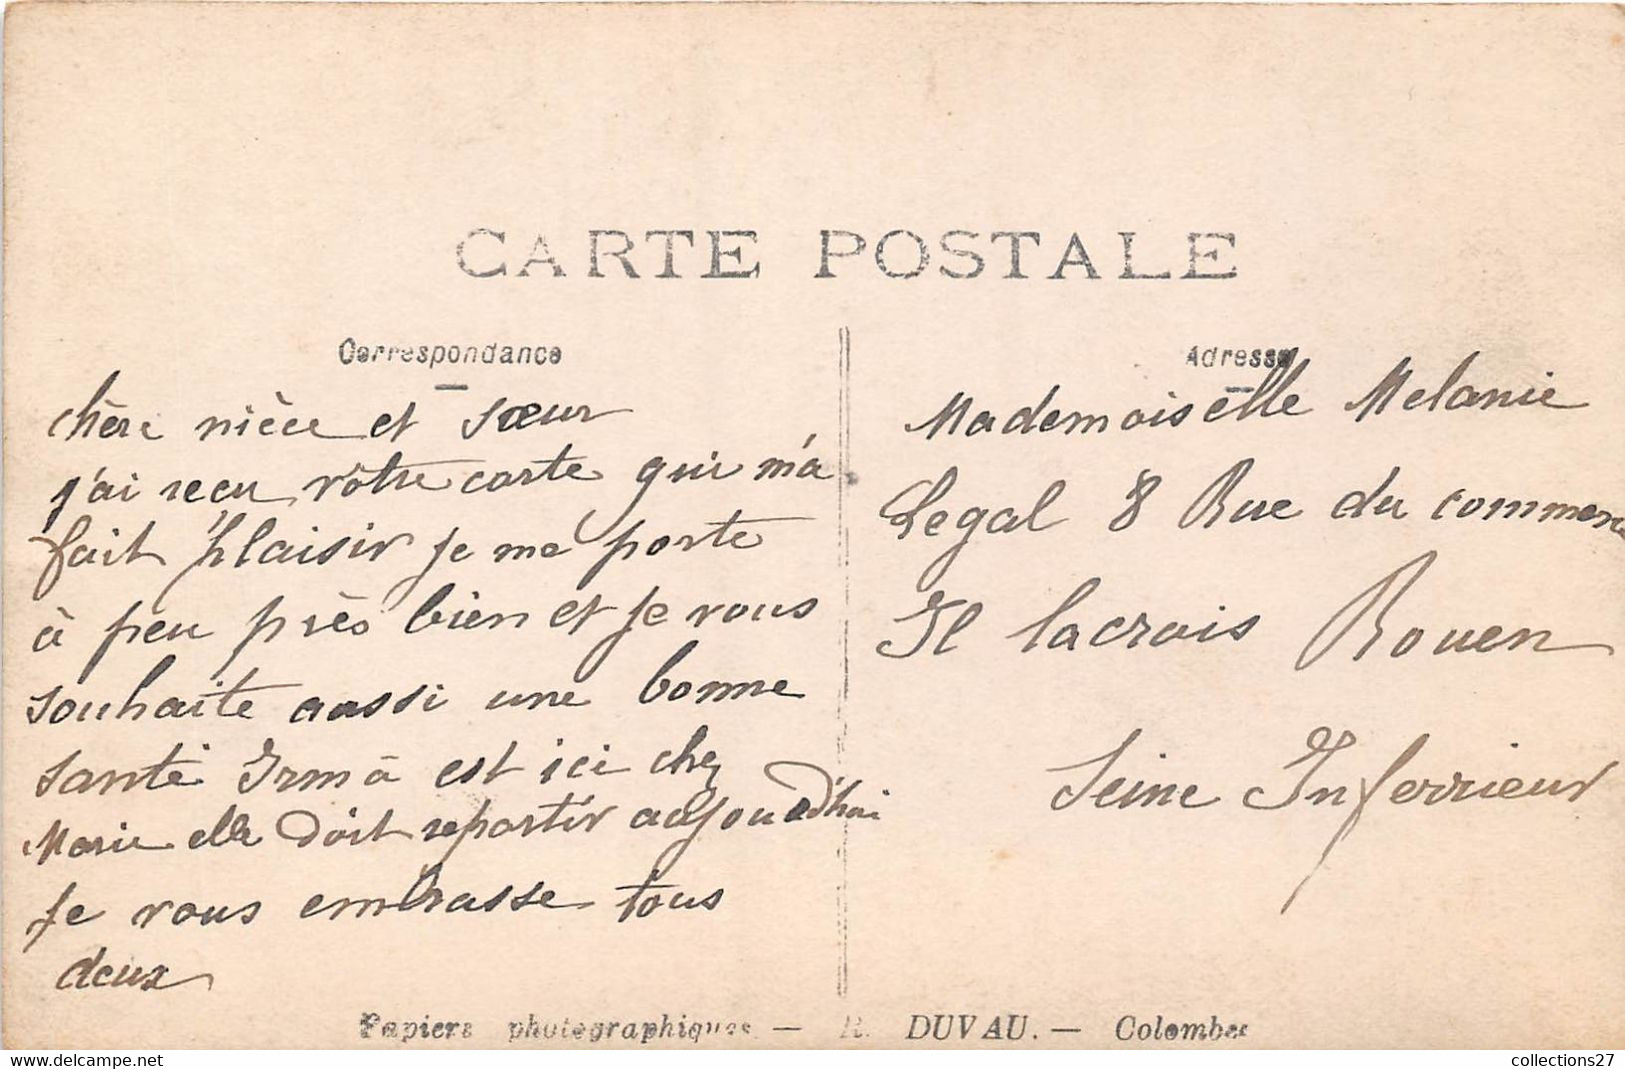 CARTE POSTALE
Correspondance
chère nièce et sœur
j'ai reçu vôtre carte qui m'a
fait plaisir je me porte
à peu près bien et je vous
souhaite aussi une bonne
santé Irma est ici chez
Marie elle doit repartir aujourd'hui
je vous embrasse tous
deux
Adresse
Mademoiselle Melanie
Legal 8 Rue du commerce
Il lacrois Rouen
Seine Inferrieur
Papiers photographiques — R. DUVAU. — Colombes
collections27